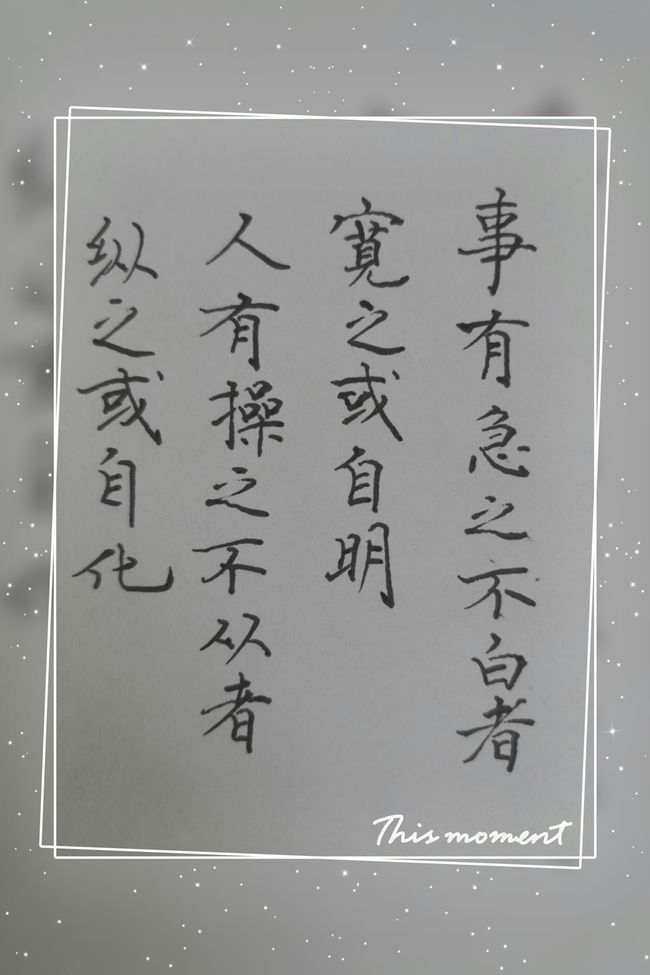 事有急之不白者
寬之或自明
人有操之不从者
纵之或自化
This moment